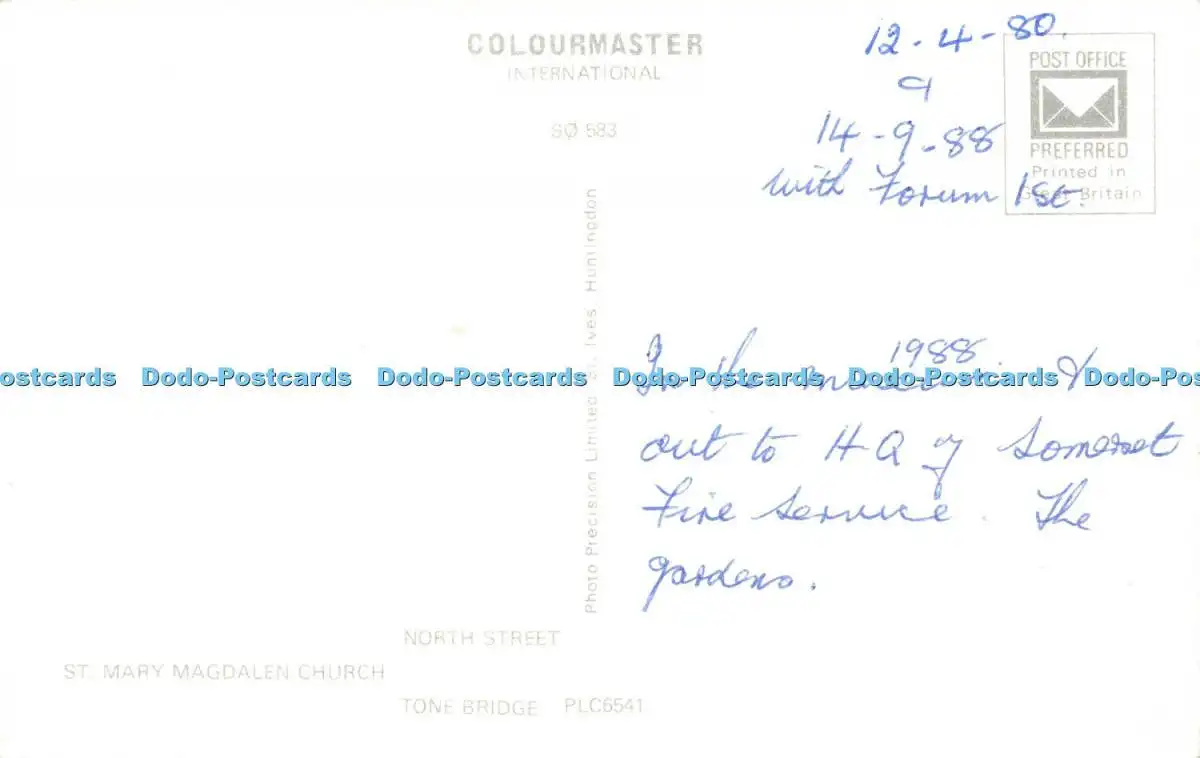 COLOURMASTER
INTERNATIONAL
SØ 583
12-4-80.
9
14-9-88
with Forum 1st.
POST OFFICE
PREFERRED
Printed in
Great Britain
Photo Precision Limited St. Ives Huntingdon
1988
In the &
out to H.Q of Somerset
Fire Service. The
gardens.
ostcards Dodo-Postcards Dodo-Postcards Dodo-Postcards Dodo-Postcards Dodo-Postc
NORTH STREET
ST. MARY MAGDALEN CHURCH
TONE BRIDGE PLC6541